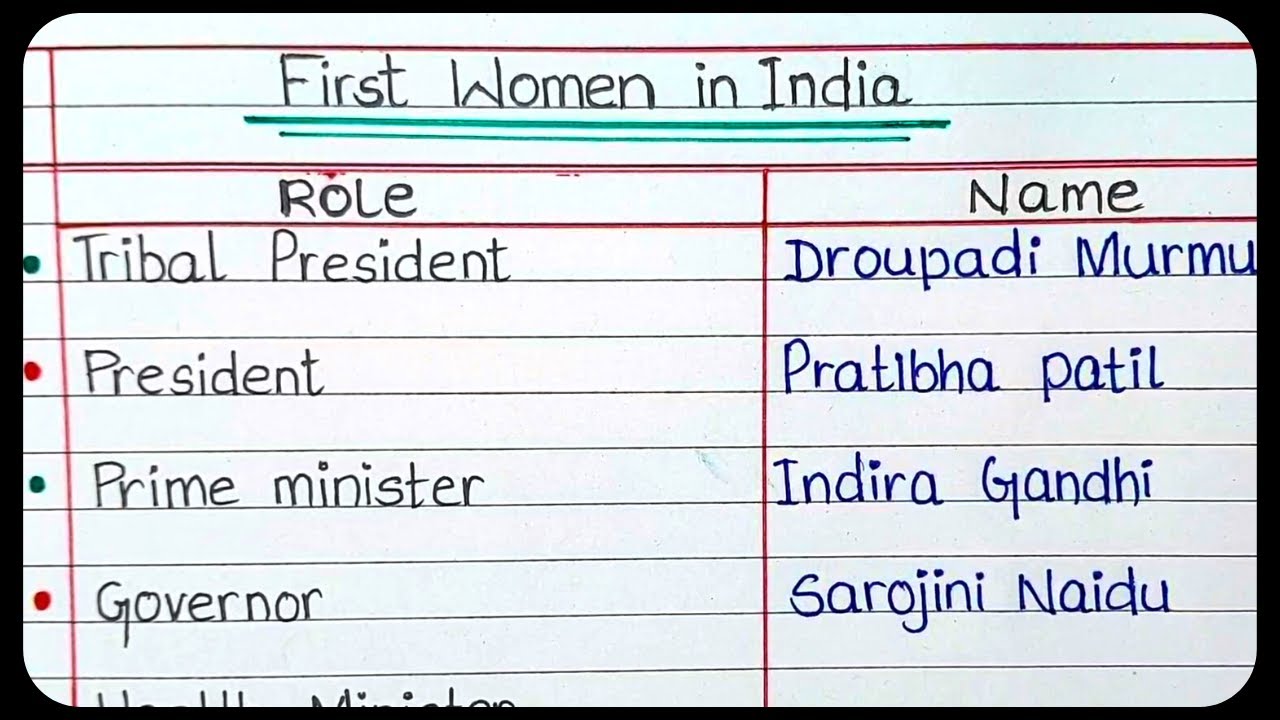 First Women in India
Role Name
Tribal President Droupadi Murmu
President Pratibha patil
Prime minister Indira Gandhi
Governor Sarojini Naidu
Health Minister